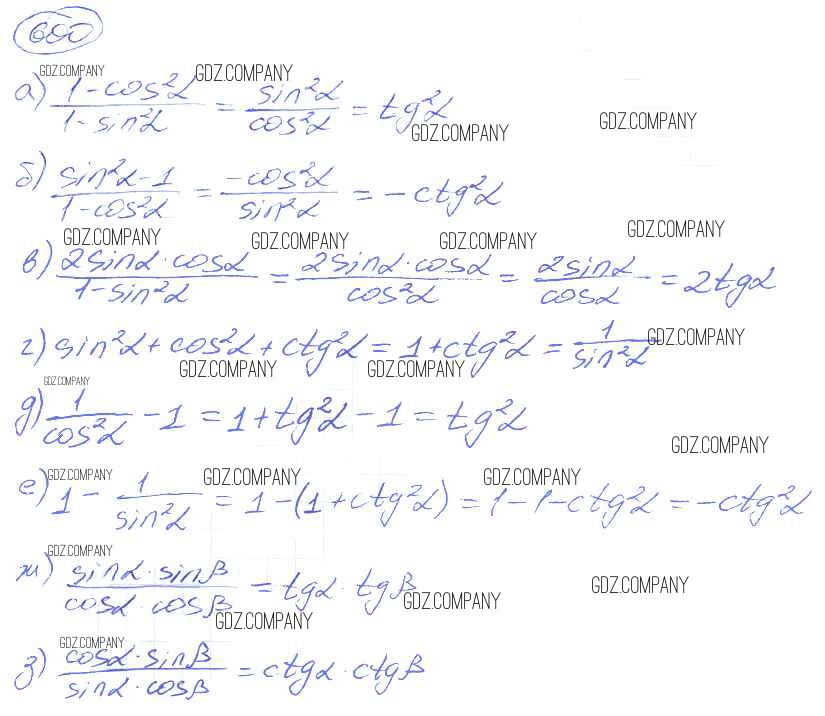 680
GDZ.COMPANY GDZ.COMPANY
а) (1-cos²α)/(1-sin²α) = sin²α/cos²α = tg²α
GDZ.COMPANY GDZ.COMPANY
б) (sin²α-1)/(1-cos²α) = -cos²α/sin²α = -ctg²α
GDZ.COMPANY GDZ.COMPANY GDZ.COMPANY GDZ.COMPANY
в) (2sinα·cosα)/(1-sin²α) = (2sinα·cosα)/cos²α = 2sinα/cosα = 2tgα
г) sin²α+cos²α+ctg²α = 1+ctg²α = 1/sin²α GDZ.COMPANY
GDZ.COMPANY GDZ.COMPANY
GDZ.COMPANY
д) 1/cos²α - 1 = 1+tg²α - 1 = tg²α
GDZ.COMPANY
GDZ.COMPANY GDZ.COMPANY GDZ.COMPANY
е) 1 - 1/sin²α = 1-(1+ctg²α) = 1-1-ctg²α = -ctg²α
GDZ.COMPANY
ж) (sinα·sinβ)/(cosα·cosβ) = tgα·tgβ
GDZ.COMPANY GDZ.COMPANY
GDZ.COMPANY
GDZ.COMPANY
з) (cosα·sinβ)/(sinα·cosβ) = ctgα·ctgβ